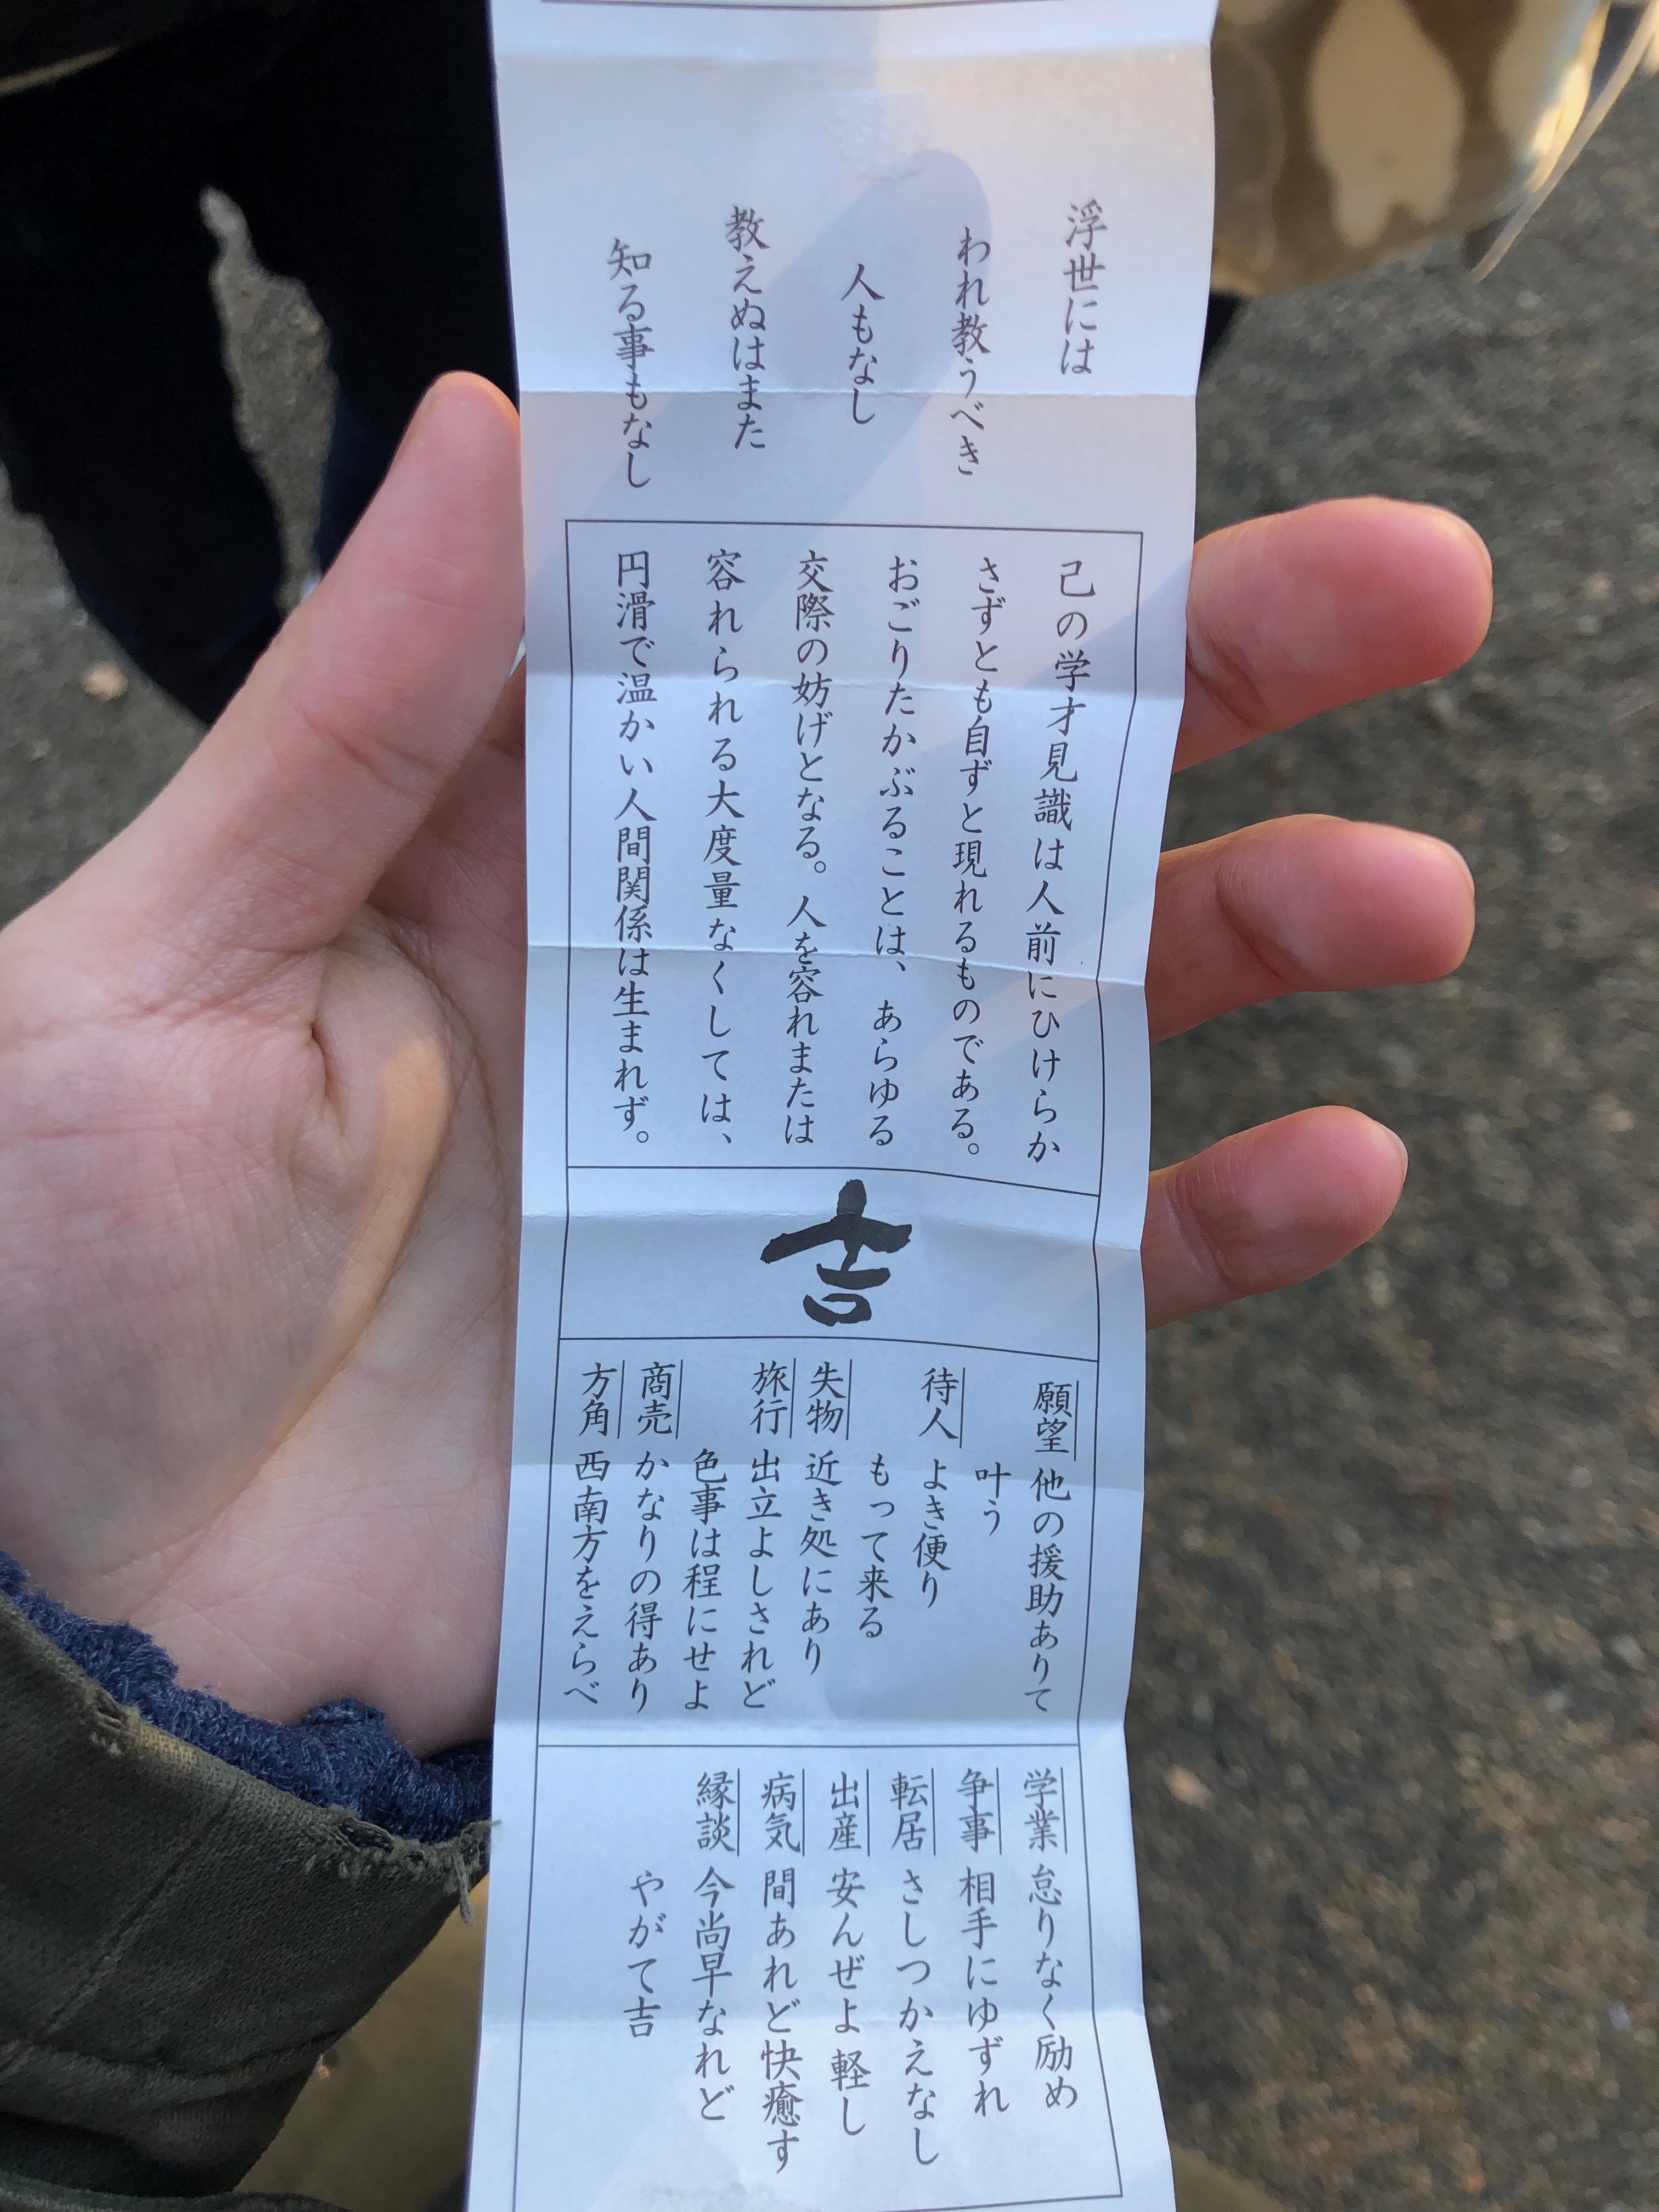 浮世には
われ教うべき
人もなし
教えぬはまた
知る事もなし
己の学才見識は人前にひけらか
さずとも自ずと現れるものである。
おごりたかぶることは、あらゆる
交際の妨げとなる。人を容れまたは
容れられる大度量なくしては、
円滑で温かい人間関係は生まれず。
吉
願望 他の援助ありて
叶う
待人 よき便り
もって来る
失物 近き処にあり
旅行 出立よしされど
色事は程にせよ
商売 かなりの得あり
方角 西南方をえらべ
学業 怠りなく励め
争事 相手にゆずれ
転居 さしつかえなし
出産 安んぜよ軽し
病気 間あれど快癒す
縁談 今尚早なれど
やがて吉